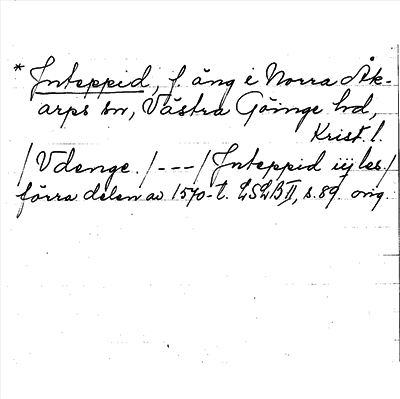 * Jnteppid, f. äng i Norra Åk-
arps sn, Västra Göinge hd,
Krist. l.
/ Vdenge. / --- / Jnteppid iij les /
förra delen av 1570-t. LSLB II, s. 89. orig.